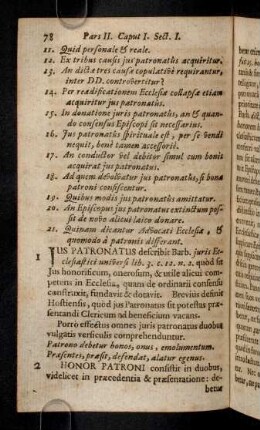 78 Pars II. Caput I. Sect. I.
11. Quid personale & reale.
12. Ex tribus causis jus patronatus acquiritur.
13. An dictæ tres causæ copulativè requirantur,
inter DD. controvertitur?
14. Per readificationem Ecclesiæ collapsæ etiam
acquiritur jus patronatus.
15. In donatione juris patronatus, an & quan-
do consensus Episcopi sit necessarius.
16. Jus patronatus spirituale est, per se vendi
nequit, bene tamen accessoriè.
17. An conductor vel debitor simul cum bonis
acquirat jus patronatus.
18. Ad quem devolvatur jus patronatus, si bona
patroni confiscentur.
19. Quibus modis jus patronatus amittatur.
20. An Episcopus jus patronatus extinctum pos-
sit de novo alicui laico donare.
21. Quinam dicantur Advocati Ecclesiæ, &
quomodo à patronis differant.
1 JUS PATRONATUS describit Barb. juris Ec-
clesiastici universi lib. 3. c. 12. n. 2. quòd sit
Jus honorificum, onerosum, & utile alicui com-
petens in Ecclesia, quam de ordinarii consensu
construxit, fundavit & dotavit. Brevius definit
Hostiensis, quòd jus Patronatus sit potestas præ-
sentandi Clericum ad beneficium vacans.
Porrò effectus omnes juris patronatus duobus
vulgatis versiculis comprehenduntur.
Patrono debetur honos, onus, emolumentum.
Præsentet, præsit, defendat, alatur egenus.
2 HONOR PATRONI consistit in duobus,
videlicet in præcedentia & præsentatione: de-
betur